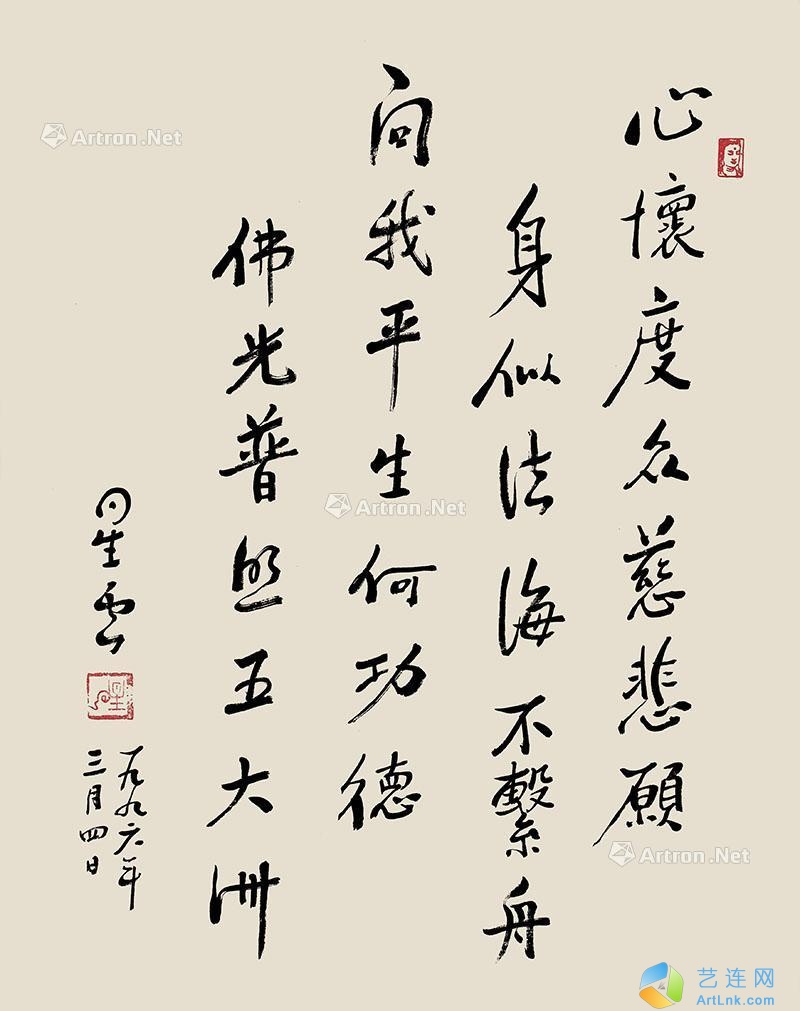 心懷度众慈悲願
身似法海不繫舟
问我平生何功德
佛光普照五大洲
星雲
一九九六年
三月四日
Artron.Net
Artron.Net
Artron.Net
艺连网
ArtLnk.com